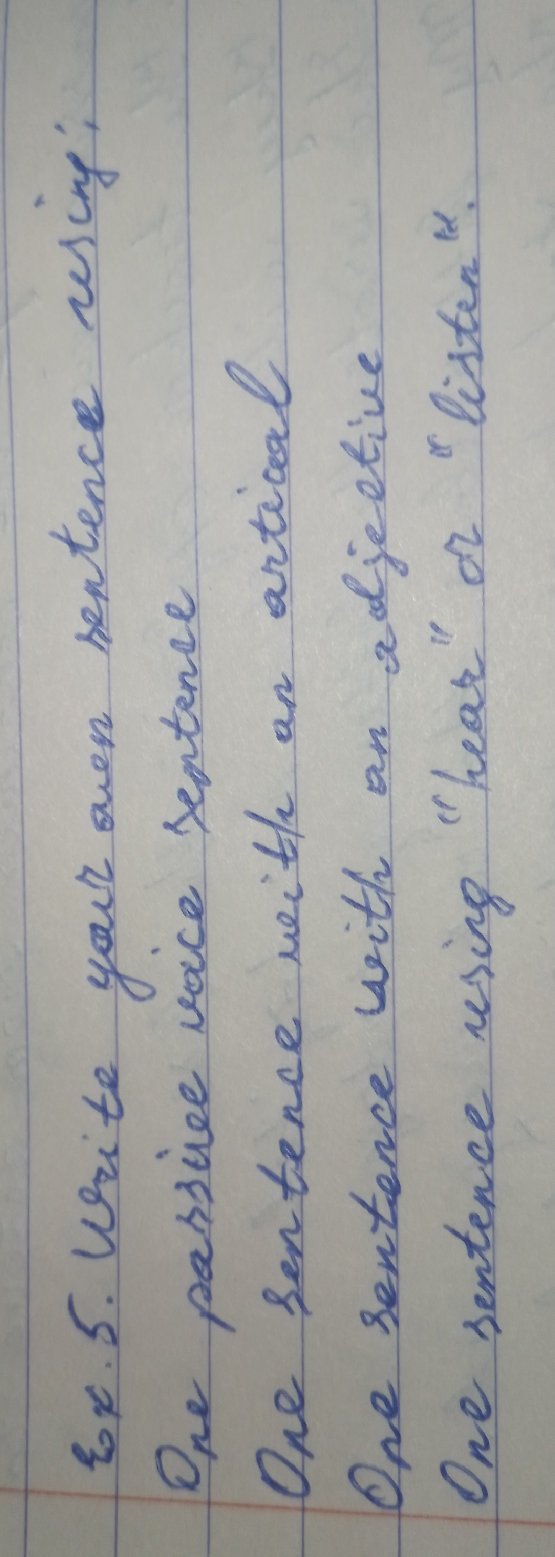 Ex. 5. Write your own sentence using;
One passive voice sentence
One sentence with an artical
One sentence with an adjective
One sentence using "hear" or "listen".